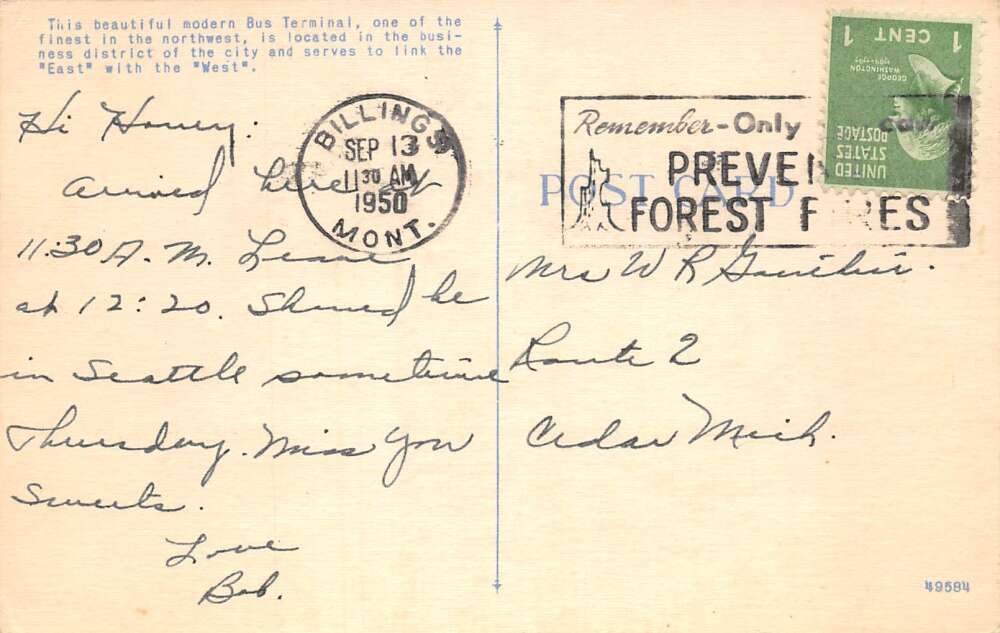 This beautiful modern Bus Terminal, one of the
finest in the northwest, is located in the busi-
ness district of the city and serves to link the
"East" with the "West".
Hi Honey:
Arrived here at
11:30 A.M. Leave
at 12:20. Should be
in Seattle sometime
Thursday. Miss You
Sweets.
Love
Bob.
BILLINGS
SEP 13
11 30 AM
1950
MONT.
Remember-Only
PREVEN
FOREST F RES
POST CARD
1 CENT 1
GEORGE
WASHINGTON
UNITED
STATES
POSTAGE
Mrs W R Gauthier.
Route 2
Cedar Mich.
49584